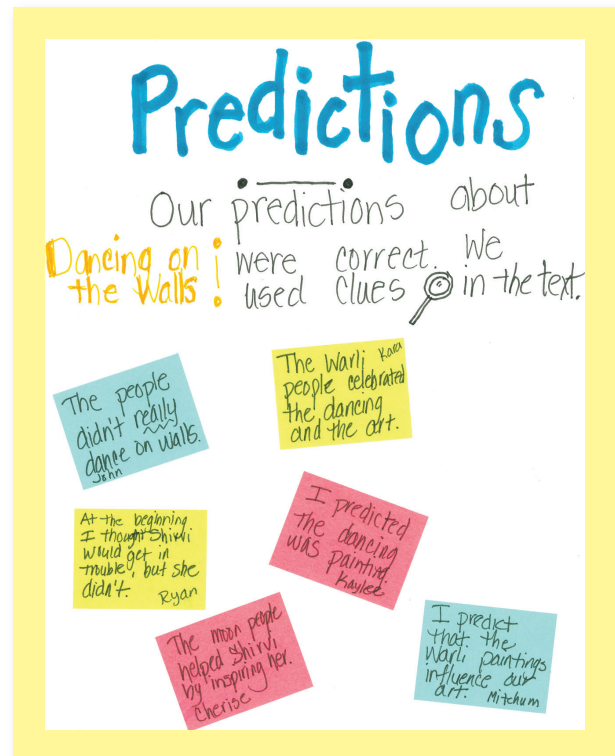 Predictions
Our predictions about
Dancing on the Walls! were correct. We
used clues in the text.
The people
didn't really
dance on walls.
John
The Warli Kara
people celebrated
the dancing
and the art.
At the beginning
I thought Shirvi
would get in
trouble, but she
didn't.
Ryan
I predicted
the dancing
was painting.
Kaylee
The moon people
helped Shirvi
by inspiring her.
Cherise
I predict
that the
Warli paintings
influence our
art. Mitchum